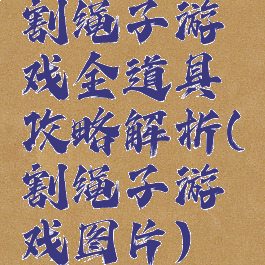 割绳子游
戏全道具
攻略解析(
割绳子游
戏图片)